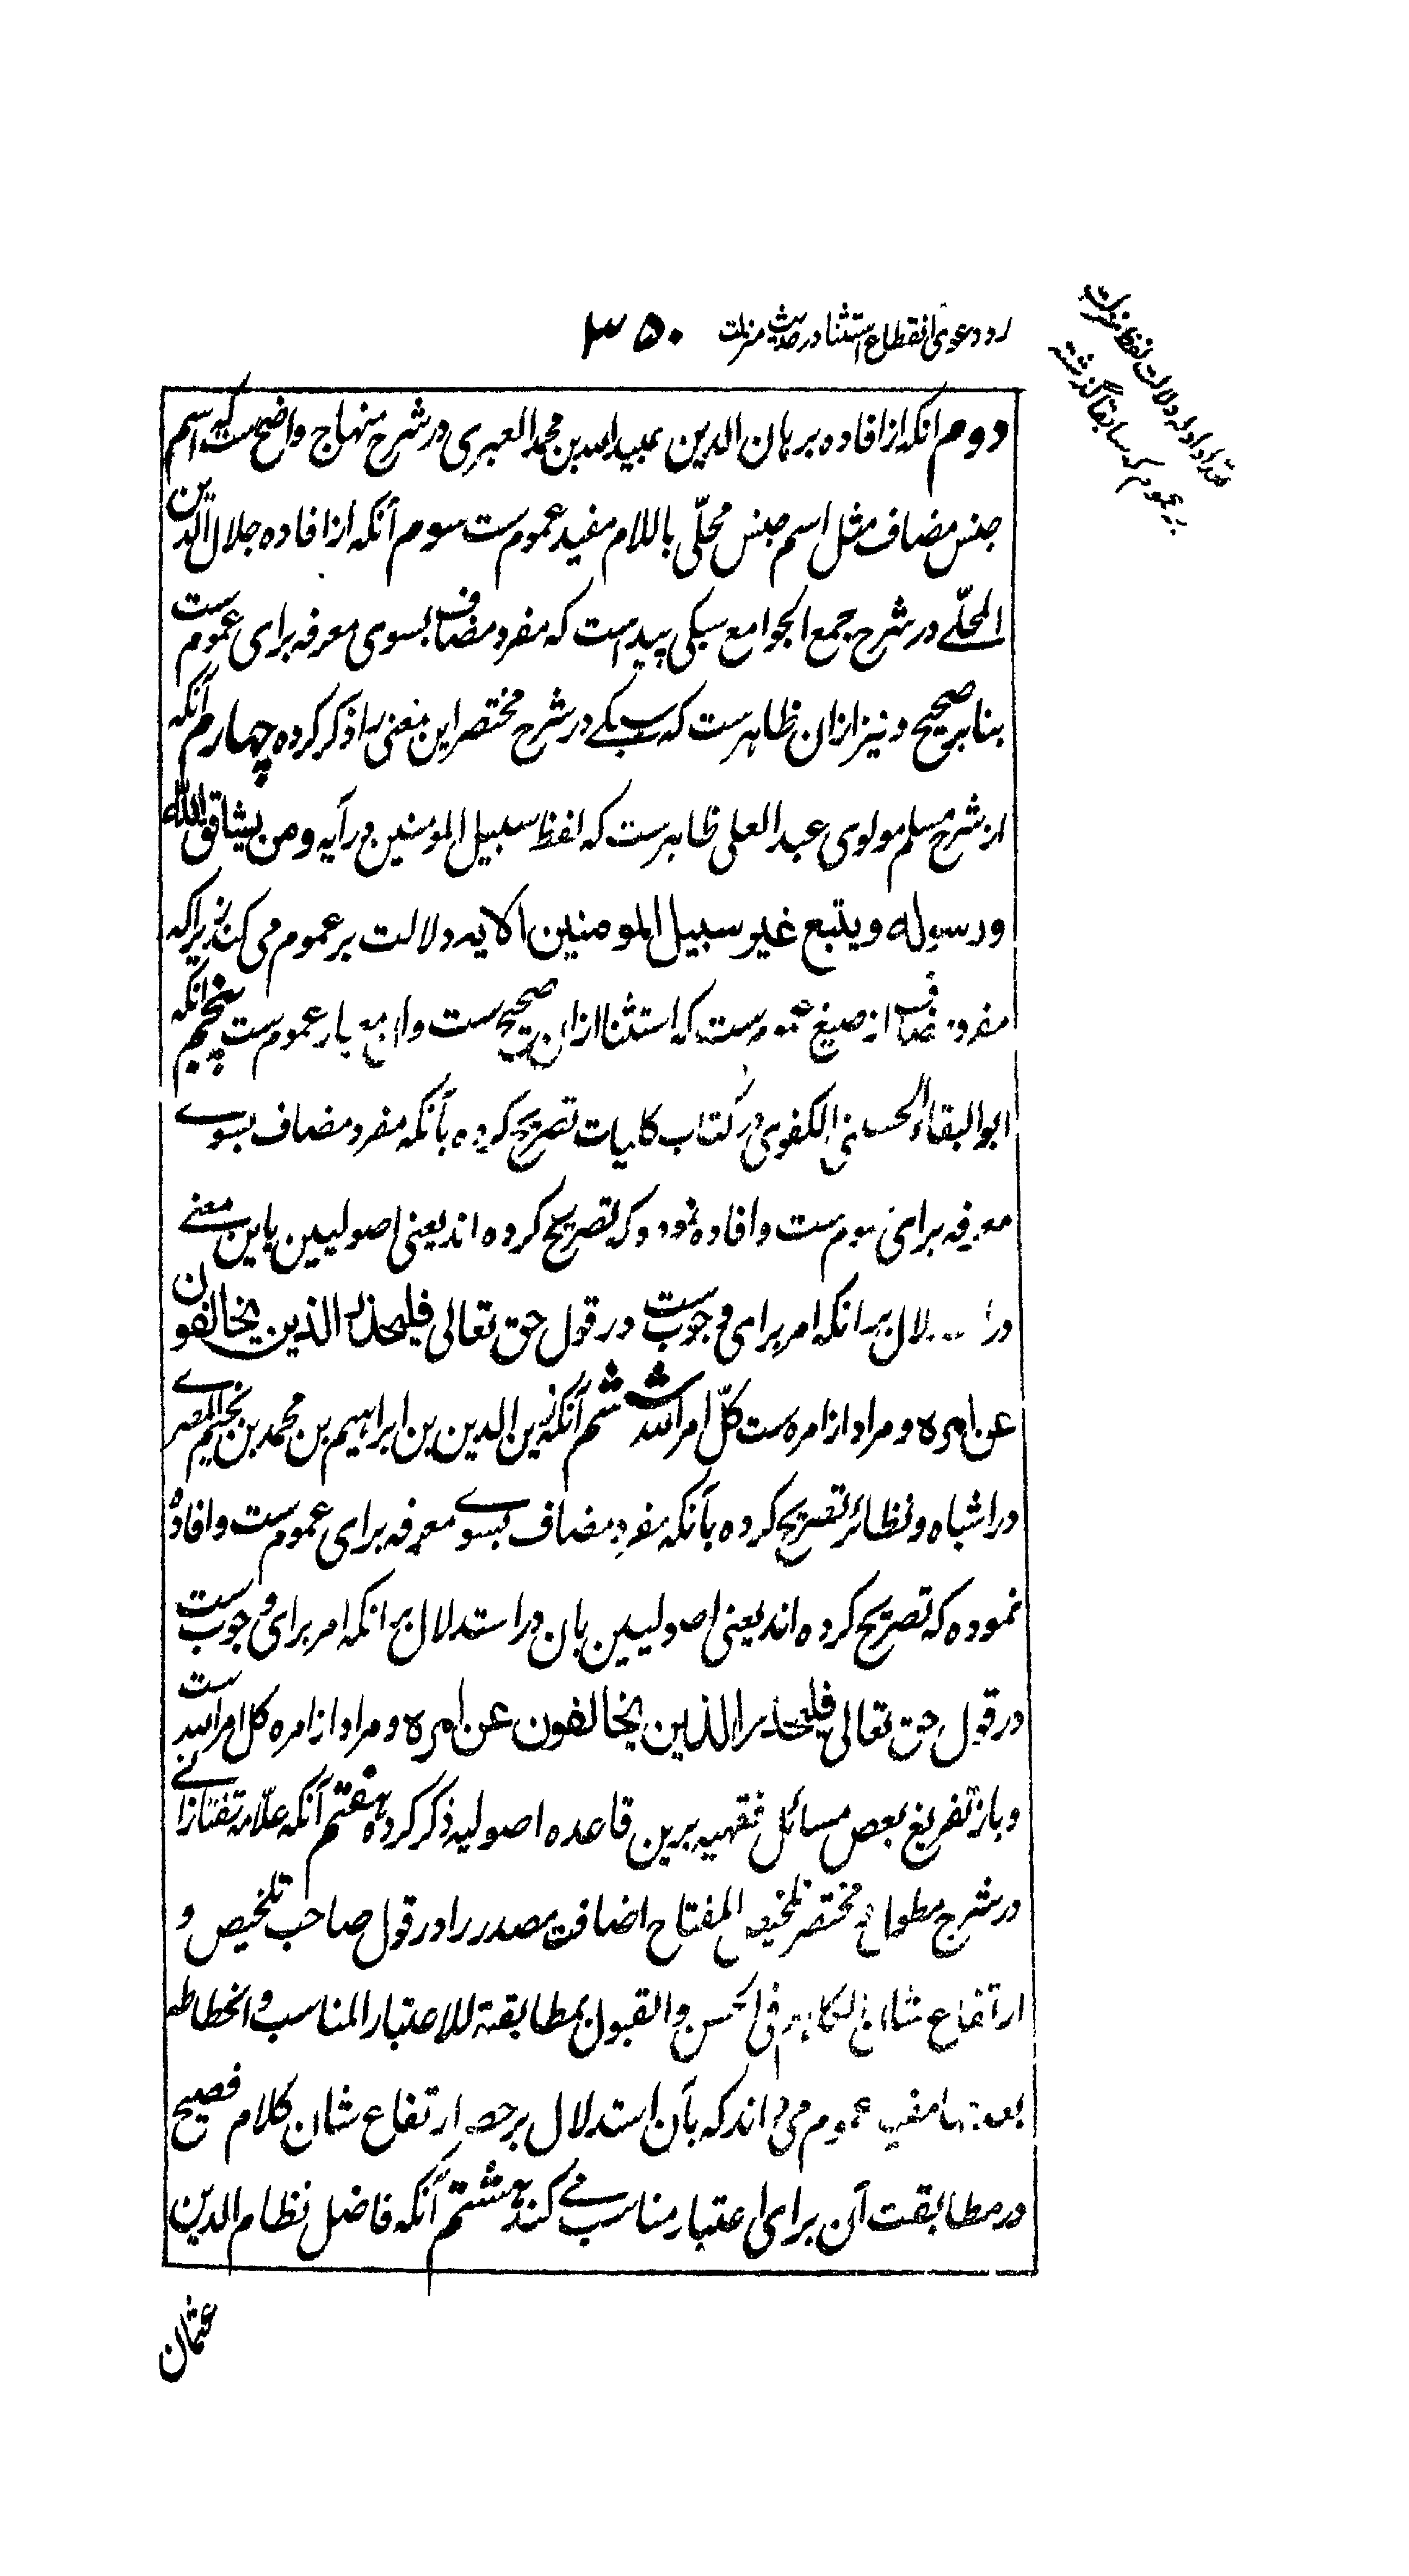 رد دعوی انقطاع استثنا در حدیث منزلت ۳۵۰
تعداد ادله دلالت لفظ منزلت
بر عموم که سابقا گذشته
دوم آنکه از افاده برهان الدین عبیدالله بن محمد العبری در شرح منهاج واضح ست که اسم
جنس مضاف مثل اسم جنس محلّی باللام مفید عموم ست سوم آنکه از افاده جلال الدین
المحلّے در شرح جمع الجوامع سبکی پیداست که مفرد مضاف بسوی معرفه برای عموم ست
بنابر صحیح و نیز ازان ظاهرست که سبکے در شرح مختصر این معنی را ذکر کرده چهارم آنکه
از شرح مسلم مولوی عبد العلی ظاهرست که لفظ سبیل المومنین در آیه ومن یشاقق الله
ورسوله ویتبع غیر سبیل المومنین الایه دلالت بر عموم می کند زیرا که
مفرد مضاف از صیغ عموم ست که استثنا ازان صحیح ست وان معیار عموم ست پنجم آنکه
ابو البقاء الحسینی الکفوی در کتاب کلیات تصریح کرده بآنکه مفرد مضاف بسوے
معرفه برای عموم ست و افاده نموده که تصریح کرده اند یعنی اصولیین باین معنے
در استدلال بر آنکه امر برای وجوب ست در قول حق تعالی فلیحذر الذین یخالفون
عن امره و مراد از امره ست کلّ امر الله ششم آنکه زین الدین بن ابراهیم بن محمد بن نجیم المصرے
در اشباه و نظائر تصریح کرده بآنکه مفرد مضاف بسوے معرفه برای عموم ست و افاده
نموده که تصریح کرده اند یعنی اصولیین بان در استدلال بر آنکه امر برای وجوب ست
در قول حق تعالی فلیحذر الذین یخالفون عن امره و مراد از امره کل امر الله ست
و باز تفریع بعض مسائل فقهیه برین قاعده اصولیه ذکر کرده هفتم آنکه علّامه تفتازانے
در شرح مطول مختصر تلخیص المفتاح اضافت مصدر را در قول صاحب تلخیص و
ارتفاع شان الکلام فی الحسن والقبول بمطابقته للاعتبار المناسب و انحطاطه
بعدمها مفید عموم می داند که بآن استدلال بر حصر ارتفاع شان کلام فصیح
در مطابقت آن برای اعتبار مناسب مے کند هشتم آنکه فاضل نظام الدین
عثمان